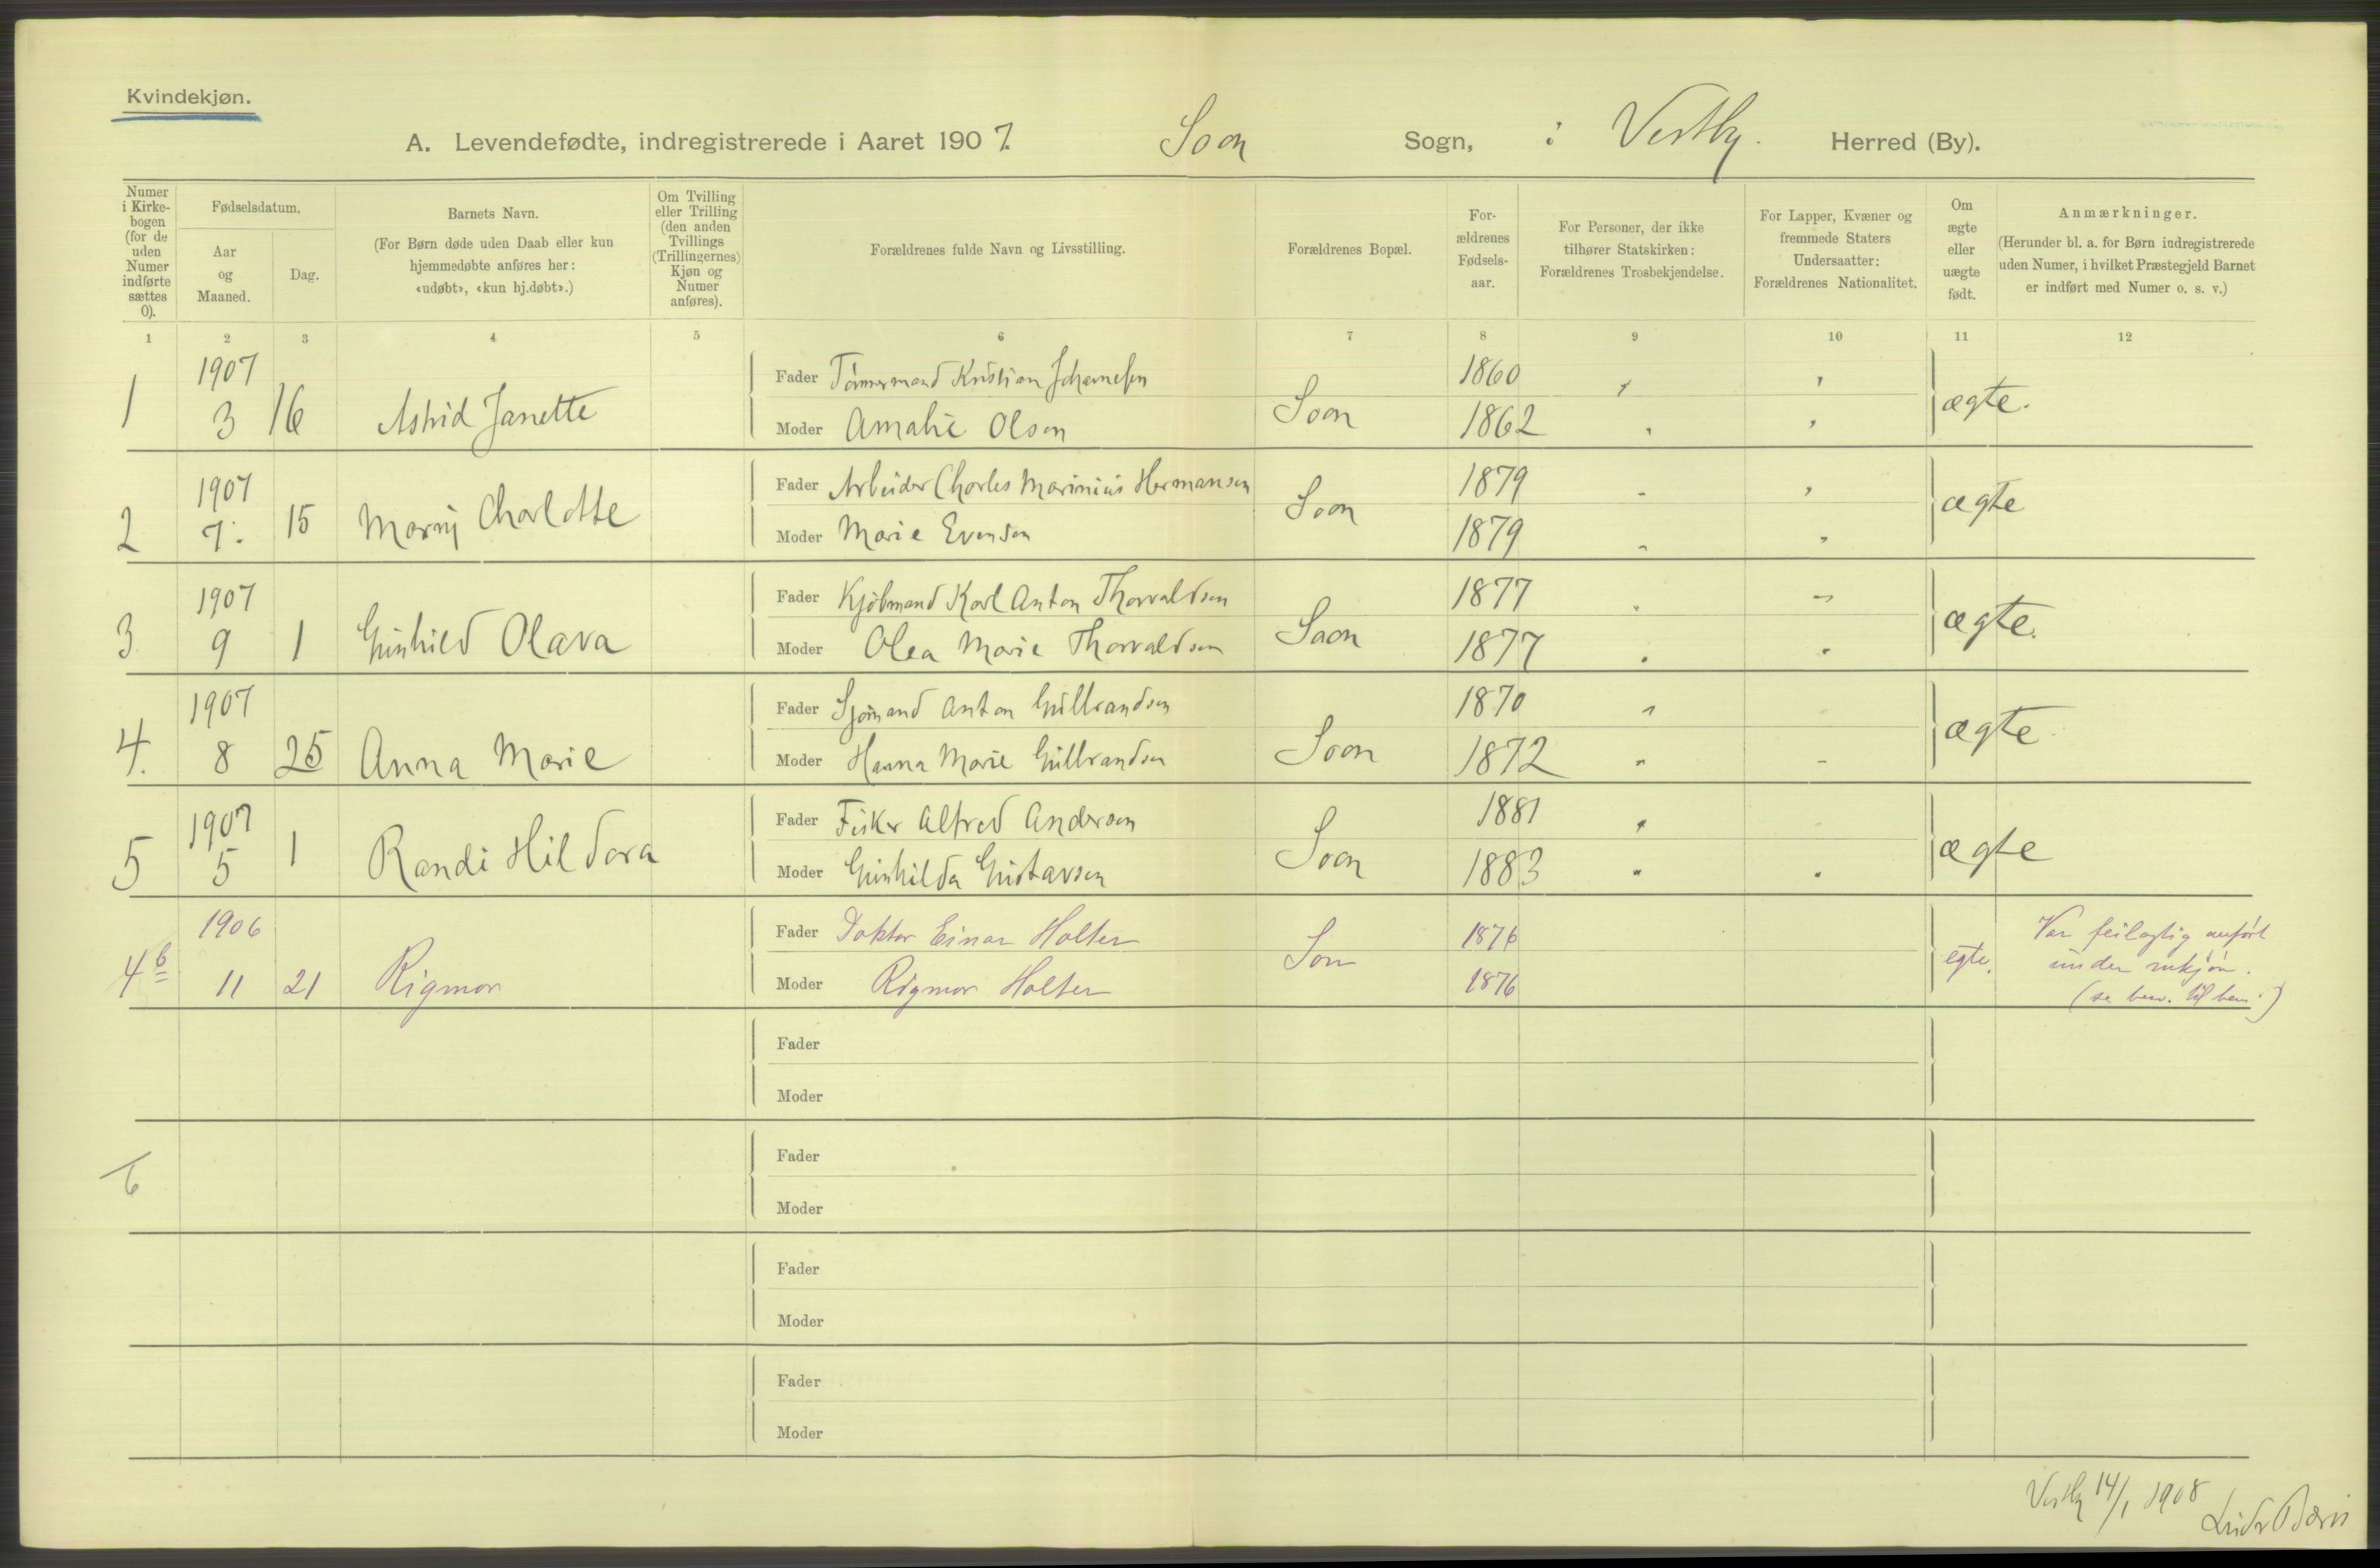 Kvindekjøn.
A. Levendefødte, indregistrerede i Aaret 1907. Soon Sogn, i Vestby. Herred (By).
Numer i Kirkebogen (for de uden Numer indførte sættes 0).
Fødselsdatum.
Aar og Maaned.
Dag.
Barnets Navn.
(For Børn døde uden Daab eller kun hjemmedøbte anføres her: «udøbt», «kun hj.døbt».)
Om Tvilling eller Trilling (den anden Tvillings (Trillingernes) Kjøn og Numer anføres).
Forældrenes fulde Navn og Livsstilling.
Forældrenes Bopæl.
For-ældrenes Fødsels-aar.
For Personer, der ikke tilhører Statskirken: Forældrenes Trosbekjendelse.
For Lapper, Kvæner og fremmede Staters Undersaatter: Forældrenes Nationalitet.
Om ægte eller uægte født.
Anmærkninger.
(Herunder bl. a. for Børn indregistrerede uden Numer, i hvilket Præstegjeld Barnet er indført med Numer o. s. v.)
1 2 3 4 5 6 7 8 9 10 11 12
1907 Fader Tømmermand Kristian Johannesen 1860 " "
1 3 16 Astrid Janette Moder Amalie Olsen Soon 1862 " " ægte.
1907 Fader Arbeider Charles Marinius Hermansen 1879 " "
2 7. 15 Marny Charlotte Moder Marie Evensen Soon 1879 " " ægte
1907 Fader Kjøbmand Karl Anton Thorvaldsen 1877 " "
3 9 1 Gunhild Olava Moder Olea Marie Thorvaldsen Soon 1877 " " ægte.
1907 Fader Sjømand Anton Gulbrandsen 1870 " "
4. 8 25 Anna Marie Moder Hanna Marie Gulbrandsen Soon 1872 " " ægte
1907 Fader Fisker Alfred Andersen 1881 " "
5 5 1 Randi Hildora Moder Gunhilda Gustavsen Soon 1883 " " ægte
1906 Fader Doktor Einar Holter 1876 Var feilagtig anført
4b 11 21 Rigmor Moder Rigmor Holter Son 1876 egte. under mkjøn.
(se bem. til hem.)
Fader
Moder
Fader
6
Moder
Fader
Moder
Fader
Moder
Vestby 14/1 1908